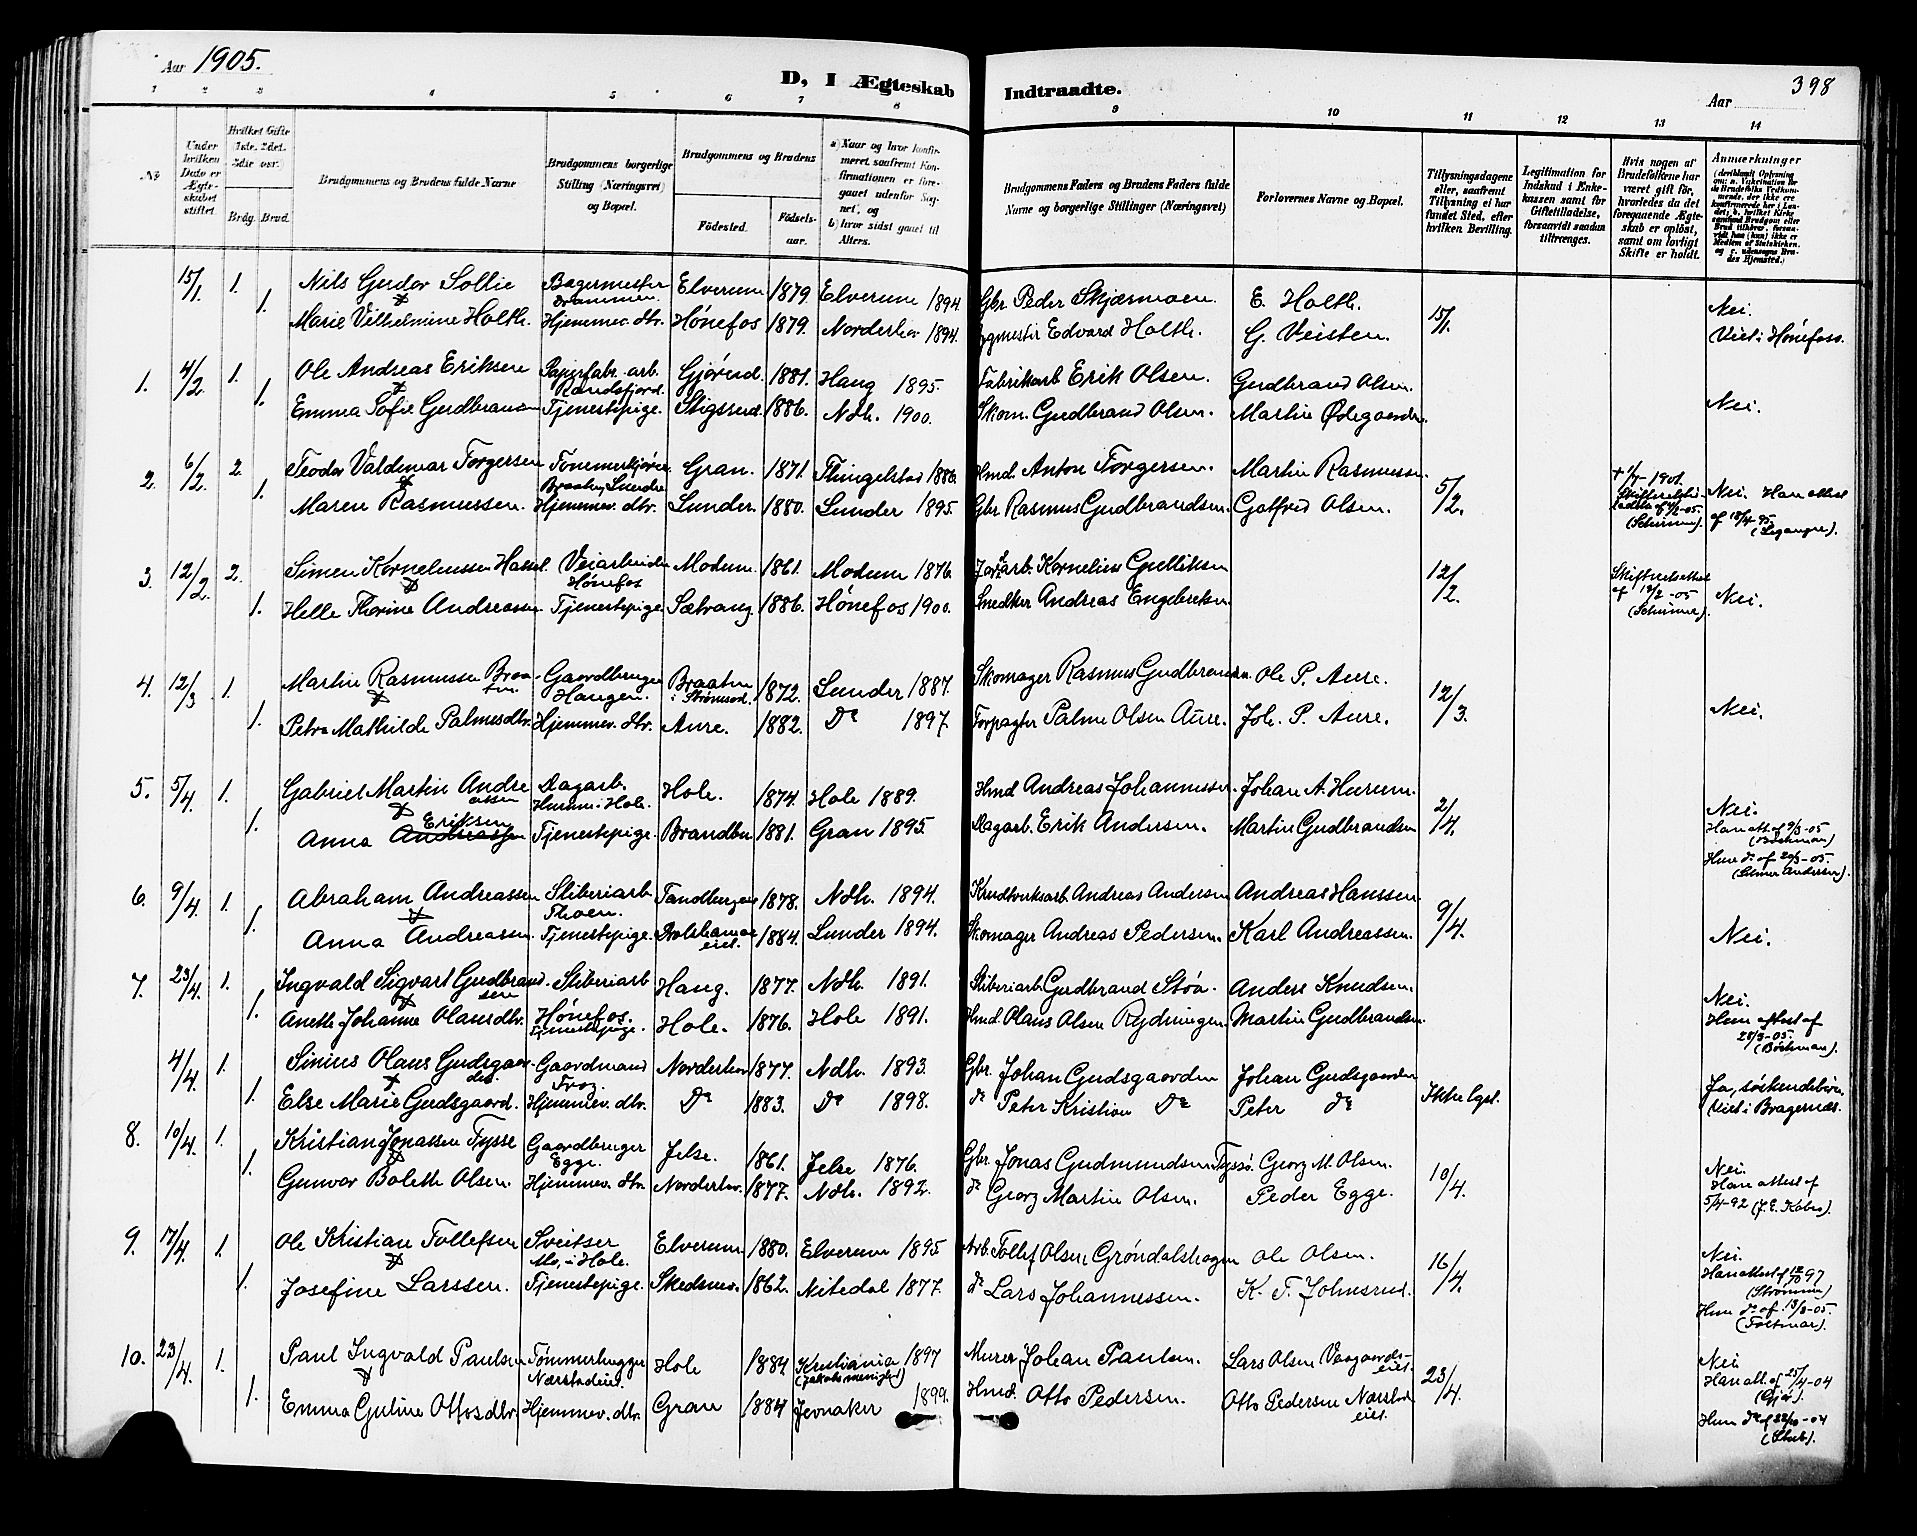 Aar 1905.
D, I Ægteskab Indtraadte.
398
Aar
1 2 3 4 5 6 7 8 9 10 11 12 13 14
No
Under hvilken Dato er Ægteskabet stiftet.
Hvilket Gifte 1ste, 2det, 3die osv.)
Brdg. Brud.
Brudgommens og Brudens fulde Navne
Brudgommens borgerlige Stilling (Næringsvei) og Bopæl.
Brudgommens og Brudens
Fødested.
Fødsels-aar.
a) Naar og hvor konfirmeret saafremt Konfirmationen er foregaaet udenfor Sognet, og
b) hvor sidst gaaet til Alters.
Brudgommens Faders og Brudens Faders fulde Navne og borgerlige Stillinger (Næringsvei)
Forlovernes Navne og Bopæl.
Tillysningsdagene eller, saafremt Tillysning ei har fundet Sted, efter hvilken Bevilling.
Legitimation for Indskud i Enkekassen samt for Giftetilladelse, forsaavidt saadan tiltrænges.
Hvis nogen af Brudefolkene har været gift før, hvorledes da det foregaaende Ægteskab er opløst, samt om lovligt Skifte er holdt.
Anmærkninger
15/1. 1. Nils Gudor Sollie Bagermester Drammen. Elverum 1879 Elverum 1894 Gbr Peder Skjærmoen. E. Holth. 15/1. Nei.
1. Marie Vilhelmine Holth. Hjemmev. dtr. Hønefos 1879. Norderhov 1894. Edvard Holth. G. Veisten. Viet i Hønefoss.
1. 4/2 1. Ole Andreas Eriksen Papirfabr. arb. Randsfjord. 1881. Haug 1895. Fabrikarb Erik Olsen. Gudbrand Olsen.
1. Emma Sofie Gudbrandsen Tjenestepige. 1886. Ndh. 1900. Skom. Gudbrand Olsen. Martin Ødegaarden. Nei.
2. 6/2. 2. Teodor Valdemar Torgersen Gran. 1871. Tingelstad 1886. Hmd. Anton Torgersen. Martin Rasmussen 5/2. Nei. Han attest
1. Maren Rasmussen. Hjemmev. dtr. Lunder. 1880. Lunder 1895. Gbr Rasmus Gudbrandsen. Gotfred Olsen. (Schirmer).
3. 12/2. 2. Simen Korneliussen Hassel. Veiarbeider Hønefos Modum. 1861. Modum 1876. Kornelius Gulliksen 12/2. Skifteattest (Schirmer). Nei.
1. Helle Thorine Andreassen Tjenestepige. Sætrang. 1886. Hønefos 1900. Snedker Andreas Engebretsen.
4. 12/3 1. Martin Rasmussen Braaten. Gaardbruger Haugen. Braaten i Strømsod. 1872. Lunder 1887. Skomager Rasmus Gudbrandsen. Ole P. Aure. 12/3. Nei.
1. Petra Mathilde Palmesdtr. Hjemmev. dtr. Aure. 1882. Do 1897. Forpagter Palme Olsen Aure. Joh. P. Aure.
5. 5/4. 1. Gabriel Martin Andreassen Dagarb. Hurum i Hole. Hole. 1874. Hole 1889. Hmd Andreas Johannessen. Johan A. Hurum. 2/4. Nei.
1. Anna Andreassen Eriksen Tjenestepige. Brandbu 1881. Gran 1895. Dagarb. Erik Andersen. Martin Gudbrandsen Han att. af 9/3-05 (Bøckman)
6. 9/4. 1. Abraham Andreassen Sliberiarb. Tandbergeie 1878. Ndh. 1894. Andreas Andersen Andreas Hanssen. 9/4. Nei.
1. Anna Andreassen. Tjenestepige. 1884. Lunder 1894. Skomager Andreas Pedersen. Karl Andreassen.
7. 23/4. 1. Ingvald Sigvart Gudbrandsen Sliberiarb Hønefos. Haug. 1877. Ndh. 1891. Sliberiarb. Gudbrand Støa. Anders Knudsen. Nei.
1. Aneth Johanne Olausdtr. Tjenestepige. Hole. 1876. Hole 1891. Hmd. Olaus Olsen Rydningen. Martin Gudbrandsen. Hun attest af 28/3-05. (Bøckman).
4/4. 1. Simius Olaus Gudsgaarden. Gaardmand Norderhov 1877. Ndh. 1893. Gbr. Johan Gudsgaarden Johan Gudsgaarden Ikke lyst. Ja, søskendebørn.
1. Else Marie Gudsgaard. Hjemmev. dtr. Do 1883. Do 1898. do Peter Kristian Do Peter do Viet i Bragernæs.
8. 10/4. 1. Kristian Jonassen Tysse Gaardbruger Egge. Jelse. 1861. Jelse 1876. Gbr. Jonas Gudmundsen Tyssø. Georg M. Olsen. 10/4. Nei. Han attest af
1. Gunvor Bolette Olsen. Hjemmev. dtr. Norderhov. 1877. Ndh. 1892. do Georg Martin Olsen. Peder Egge. 5/4-92
9. 17/4. 1. Ole Kristian Tollefsen Sveitser Mo, i Hole. Elverum 1880. Elverum 1895 Arb. Tollef Olsen Grøndalshagen Ole Olsen. 16/4. Nei.
1. Josefine Larssen. Tjenestepige. Skedsmo. 1862. Nitedal 1877. do Lars Johannessen. K. T. Johnsrud. (Strømme) Hun do af 13/3-05.
10. 23/4. 1. Paul Ingvald Paulsen Tømmerhugger Næsstadeie. Hole 1884. Kristiania 1897 (Jakobs menighed) Murer Johan Paulsen. Lars Olsen 23/4. Nei. Han att. af 25/4-04
1. Emma Guline Ottosdtr. Hjemmev. dtr. Gran 1884 Jevnaker 1899. Hmd. Otto Pedersen. Otto Pedersen